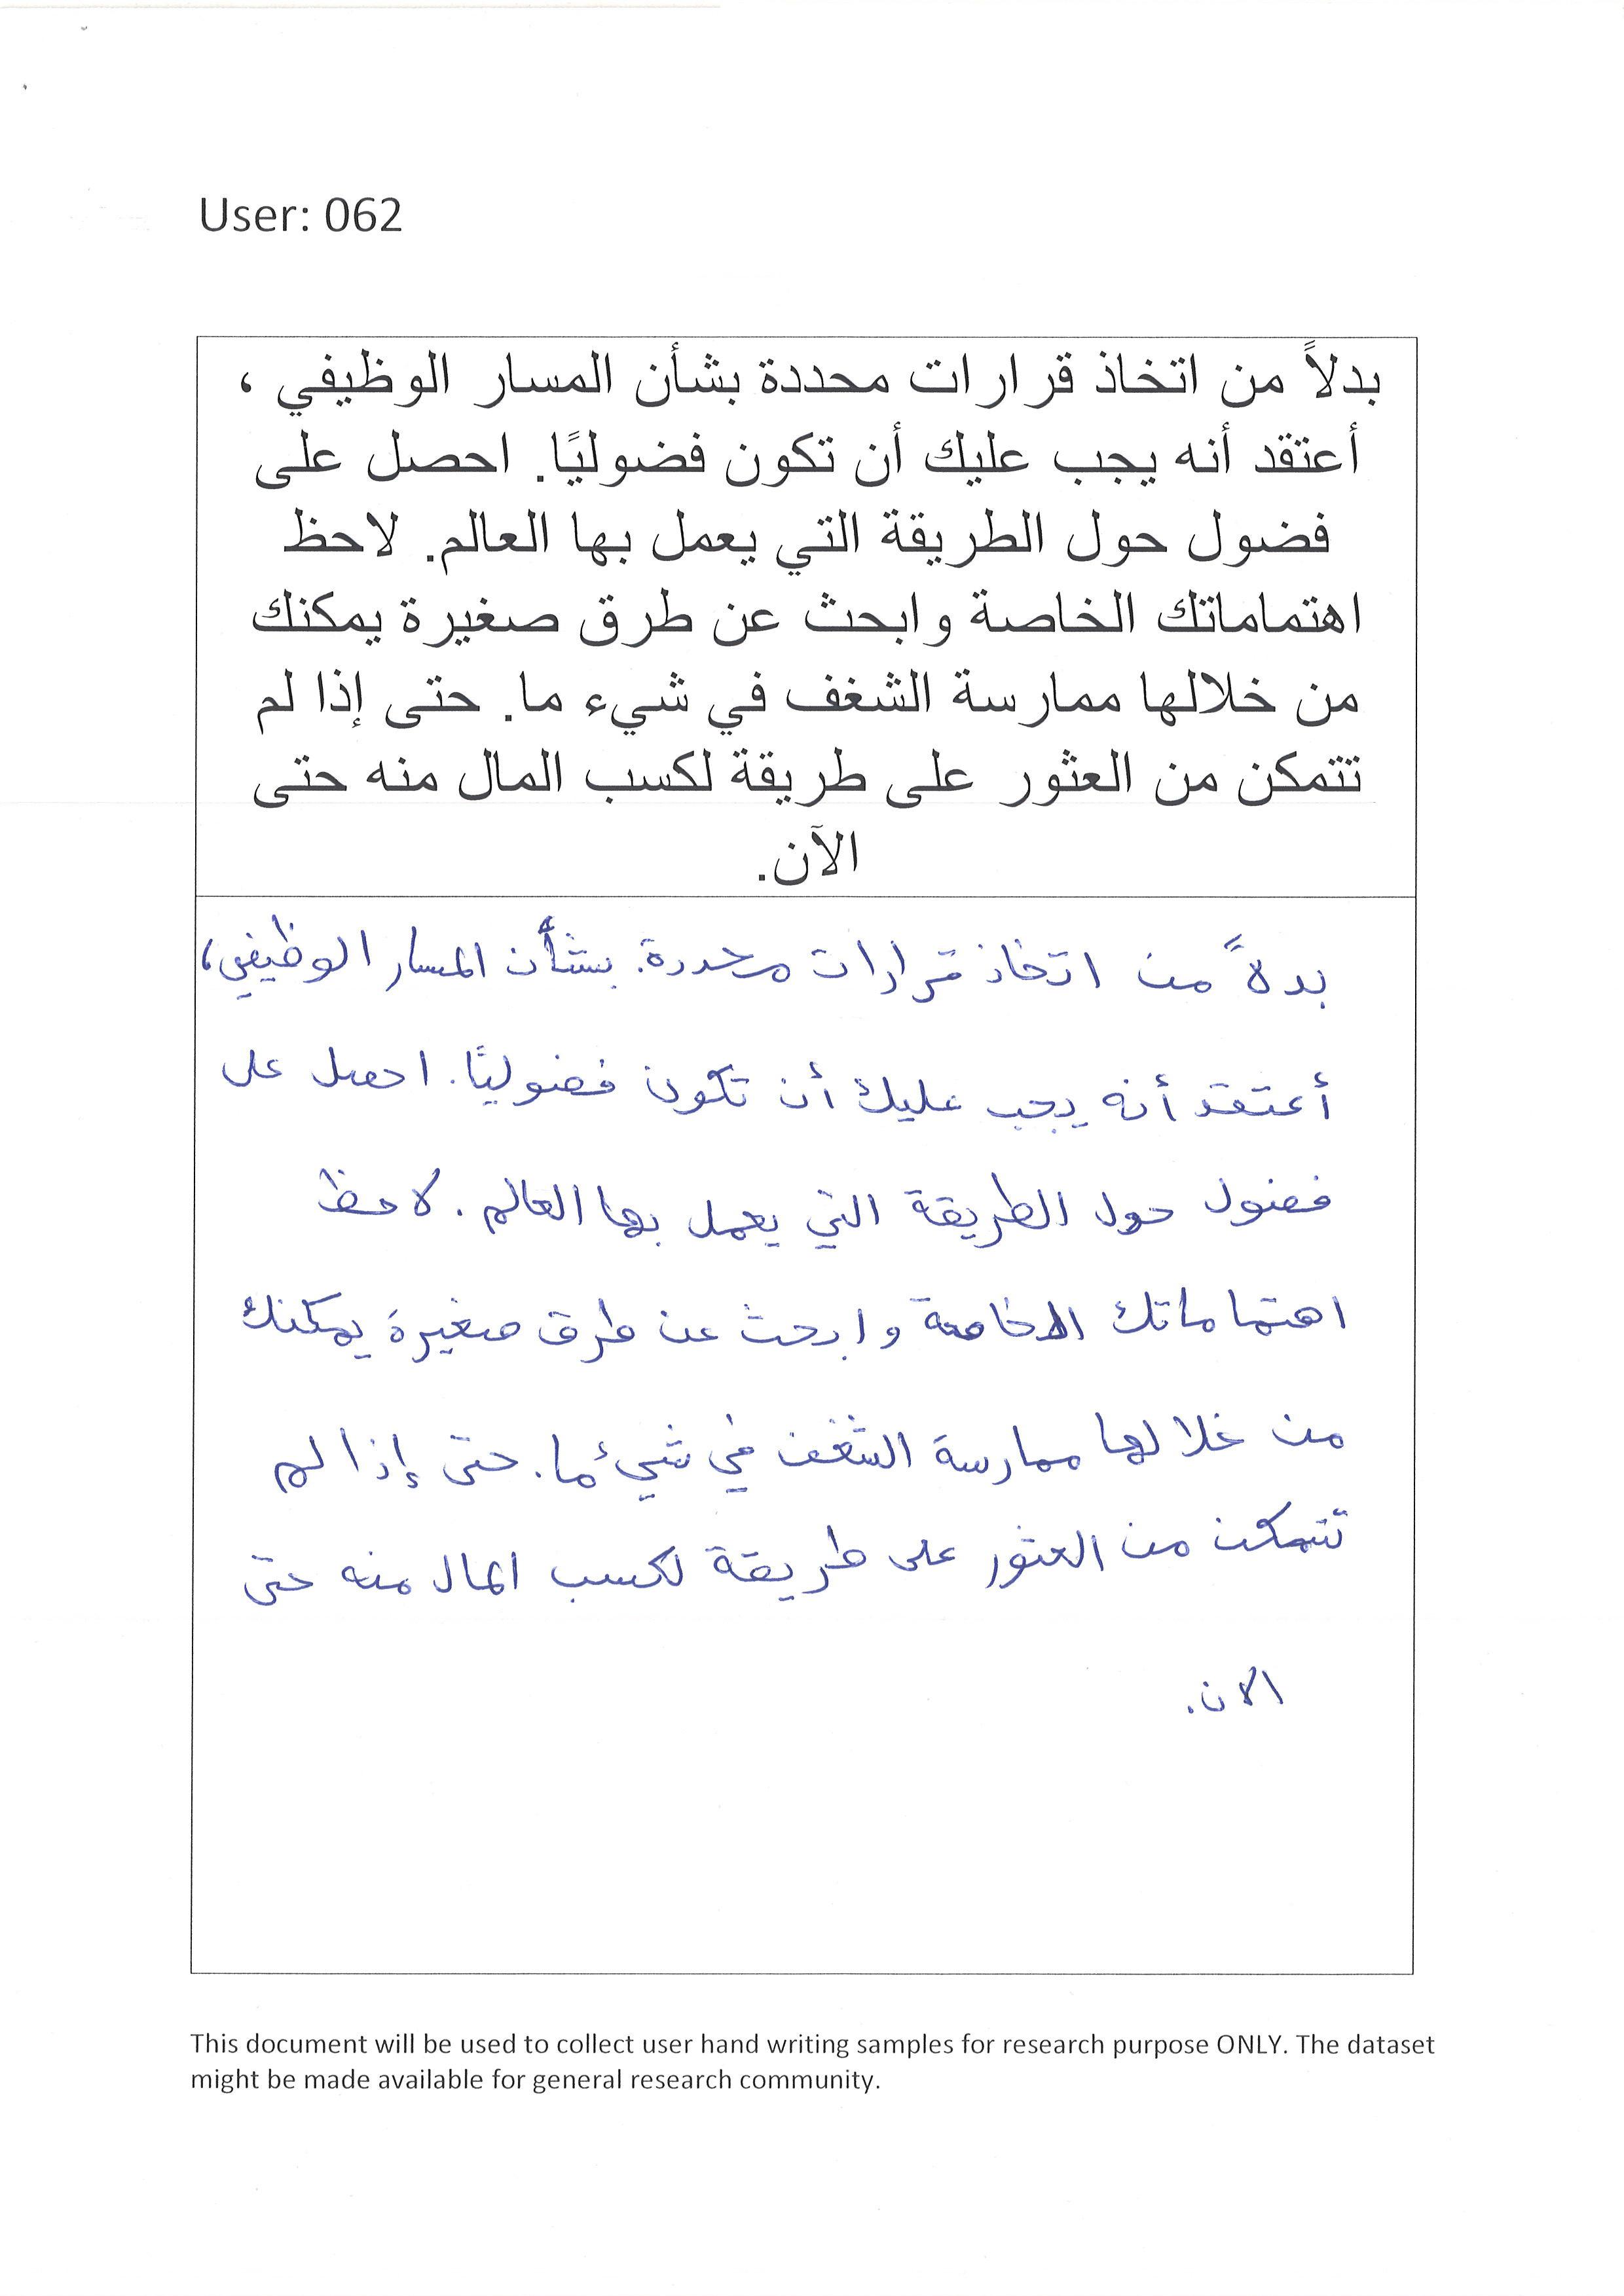 User: 062
بدلاً من اتخاذ قرارات محددة بشأن المسار الوظيفي ،
أعتقد أنه يجب عليك أن تكون فضوليًا. احصل على
فضول حول الطريقة التي يعمل بها العالم. لاحظ
اهتماماتك الخاصة وابحث عن طرق صغيرة يمكنك
من خلالها ممارسة الشغف في شيء ما. حتى إذا لم
تتمكن من العثور على طريقة لكسب المال منه حتى
الآن.
بدلاً من اتخاذ قرارات محددة. بشأن المسار الوظيفي،
أعتقد أنه يجب عليك أن تكون فضوليًا. احصل على
فضول حول الطريقة التي يعمل بها العالم. لاحظ
اهتماماتك الخاصة وابحث عن طرق صغيرة يمكنك
من خلالها ممارسة الشغف في شيء ما. حتى إذا لم
تتمكن من العثور على طريقة لكسب المال منه حتى
الان.
This document will be used to collect user hand writing samples for research purpose ONLY. The dataset
might be made available for general research community.